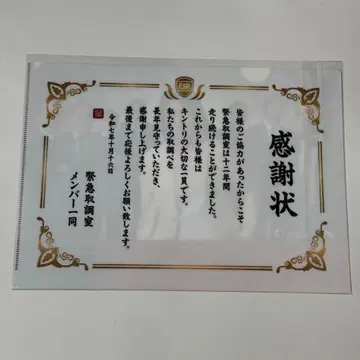 感謝状
皆様のご協力があったからこそ
緊急取調室は十二年間
走り続けることができました。
これからも皆様は
キントリの大切な一員です。
私たちの取調べを
長年見守っていただき、
感謝申し上げます。
最後まで応援よろしくお願い致します。
令和七年十月十六日
緊急取調室
メンバー一同